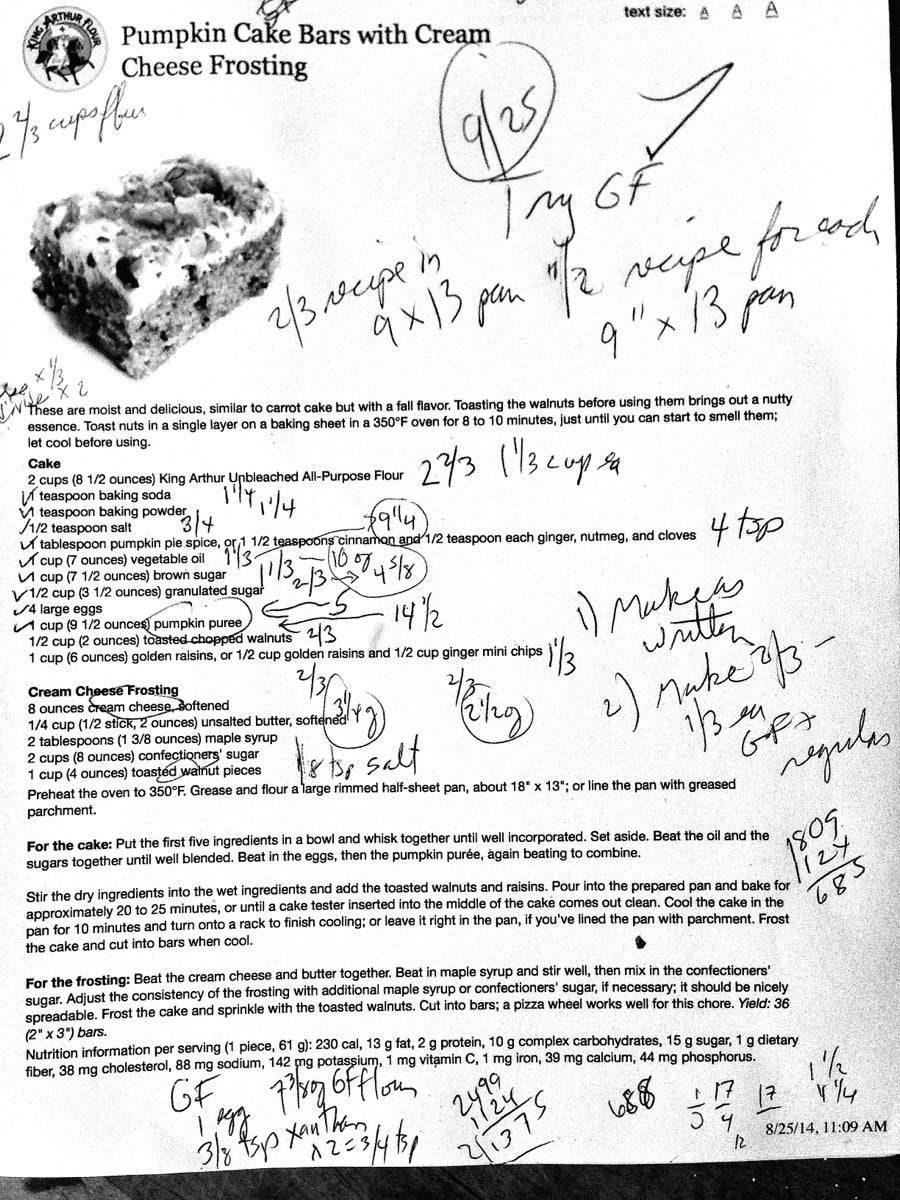 text size: A A A
KING ARTHUR FLOUR
Pumpkin Cake Bars with Cream
Cheese Frosting
2 2/3 cups flour
9/25
Try GF
2/3 recipe in
9 x 13 pan
1/2 recipe for each
9" x 13 pan
x 1/3
x 2
These are moist and delicious, similar to carrot cake but with a fall flavor. Toasting the walnuts before using them brings out a nutty
essence. Toast nuts in a single layer on a baking sheet in a 350°F oven for 8 to 10 minutes, just until you can start to smell them;
let cool before using.
Cake
2 cups (8 1/2 ounces) King Arthur Unbleached All-Purpose Flour 2 2/3 1 1/3 cup ea
1 teaspoon baking soda 1 1/4
1 teaspoon baking powder 1 1/4
1/2 teaspoon salt 3/4 9 1/4
1 tablespoon pumpkin pie spice, or 1 1/2 teaspoons cinnamon and 1/2 teaspoon each ginger, nutmeg, and cloves 4 tsp
1 cup (7 ounces) vegetable oil 1 1/3
1 cup (7 1/2 ounces) brown sugar 1 1/3 10 or
1/2 cup (3 1/2 ounces) granulated sugar 2/3 4 5/8
4 large eggs 5
1 cup (9 1/2 ounces) pumpkin puree 14 1/2
1/2 cup (2 ounces) toasted chopped walnuts 2/3
1 cup (6 ounces) golden raisins, or 1/2 cup golden raisins and 1/2 cup ginger mini chips 1 1/3
1) Make as
written
2) Make 2/3 -
1/3 ea
GF +
regular
Cream Cheese Frosting 2/3 2/3
8 ounces cream cheese, softened
1/4 cup (1/2 stick, 2 ounces) unsalted butter, softened 2 1/2g
2 tablespoons (1 3/8 ounces) maple syrup
2 cups (8 ounces) confectioners' sugar
1 cup (4 ounces) toasted walnut pieces 1/8 tsp salt
Preheat the oven to 350°F. Grease and flour a large rimmed half-sheet pan, about 18" x 13"; or line the pan with greased
parchment.
1809
1124
685
For the cake: Put the first five ingredients in a bowl and whisk together until well incorporated. Set aside. Beat the oil and the
sugars together until well blended. Beat in the eggs, then the pumpkin purée, again beating to combine.
Stir the dry ingredients into the wet ingredients and add the toasted walnuts and raisins. Pour into the prepared pan and bake for
approximately 20 to 25 minutes, or until a cake tester inserted into the middle of the cake comes out clean. Cool the cake in the
pan for 10 minutes and turn onto a rack to finish cooling; or leave it right in the pan, if you've lined the pan with parchment. Frost
the cake and cut into bars when cool.
For the frosting: Beat the cream cheese and butter together. Beat in maple syrup and stir well, then mix in the confectioners'
sugar. Adjust the consistency of the frosting with additional maple syrup or confectioners' sugar, if necessary; it should be nicely
spreadable. Frost the cake and sprinkle with the toasted walnuts. Cut into bars; a pizza wheel works well for this chore. Yield: 36
(2" x 3") bars.
Nutrition information per serving (1 piece, 61 g): 230 cal, 13 g fat, 2 g protein, 10 g complex carbohydrates, 15 g sugar, 1 g dietary
fiber, 38 mg cholesterol, 88 mg sodium, 142 mg potassium, 1 mg vitamin C, 1 mg iron, 39 mg calcium, 44 mg phosphorus.
GF 7 3/8 oz GF flour
1 egg
3/8 tsp xanthan
x 2 = 3/4 tsp
2499
1124
2 1375
688
1/3 17/4 17
12
1 1/2
1 1/4
8/25/14, 11:09 AM